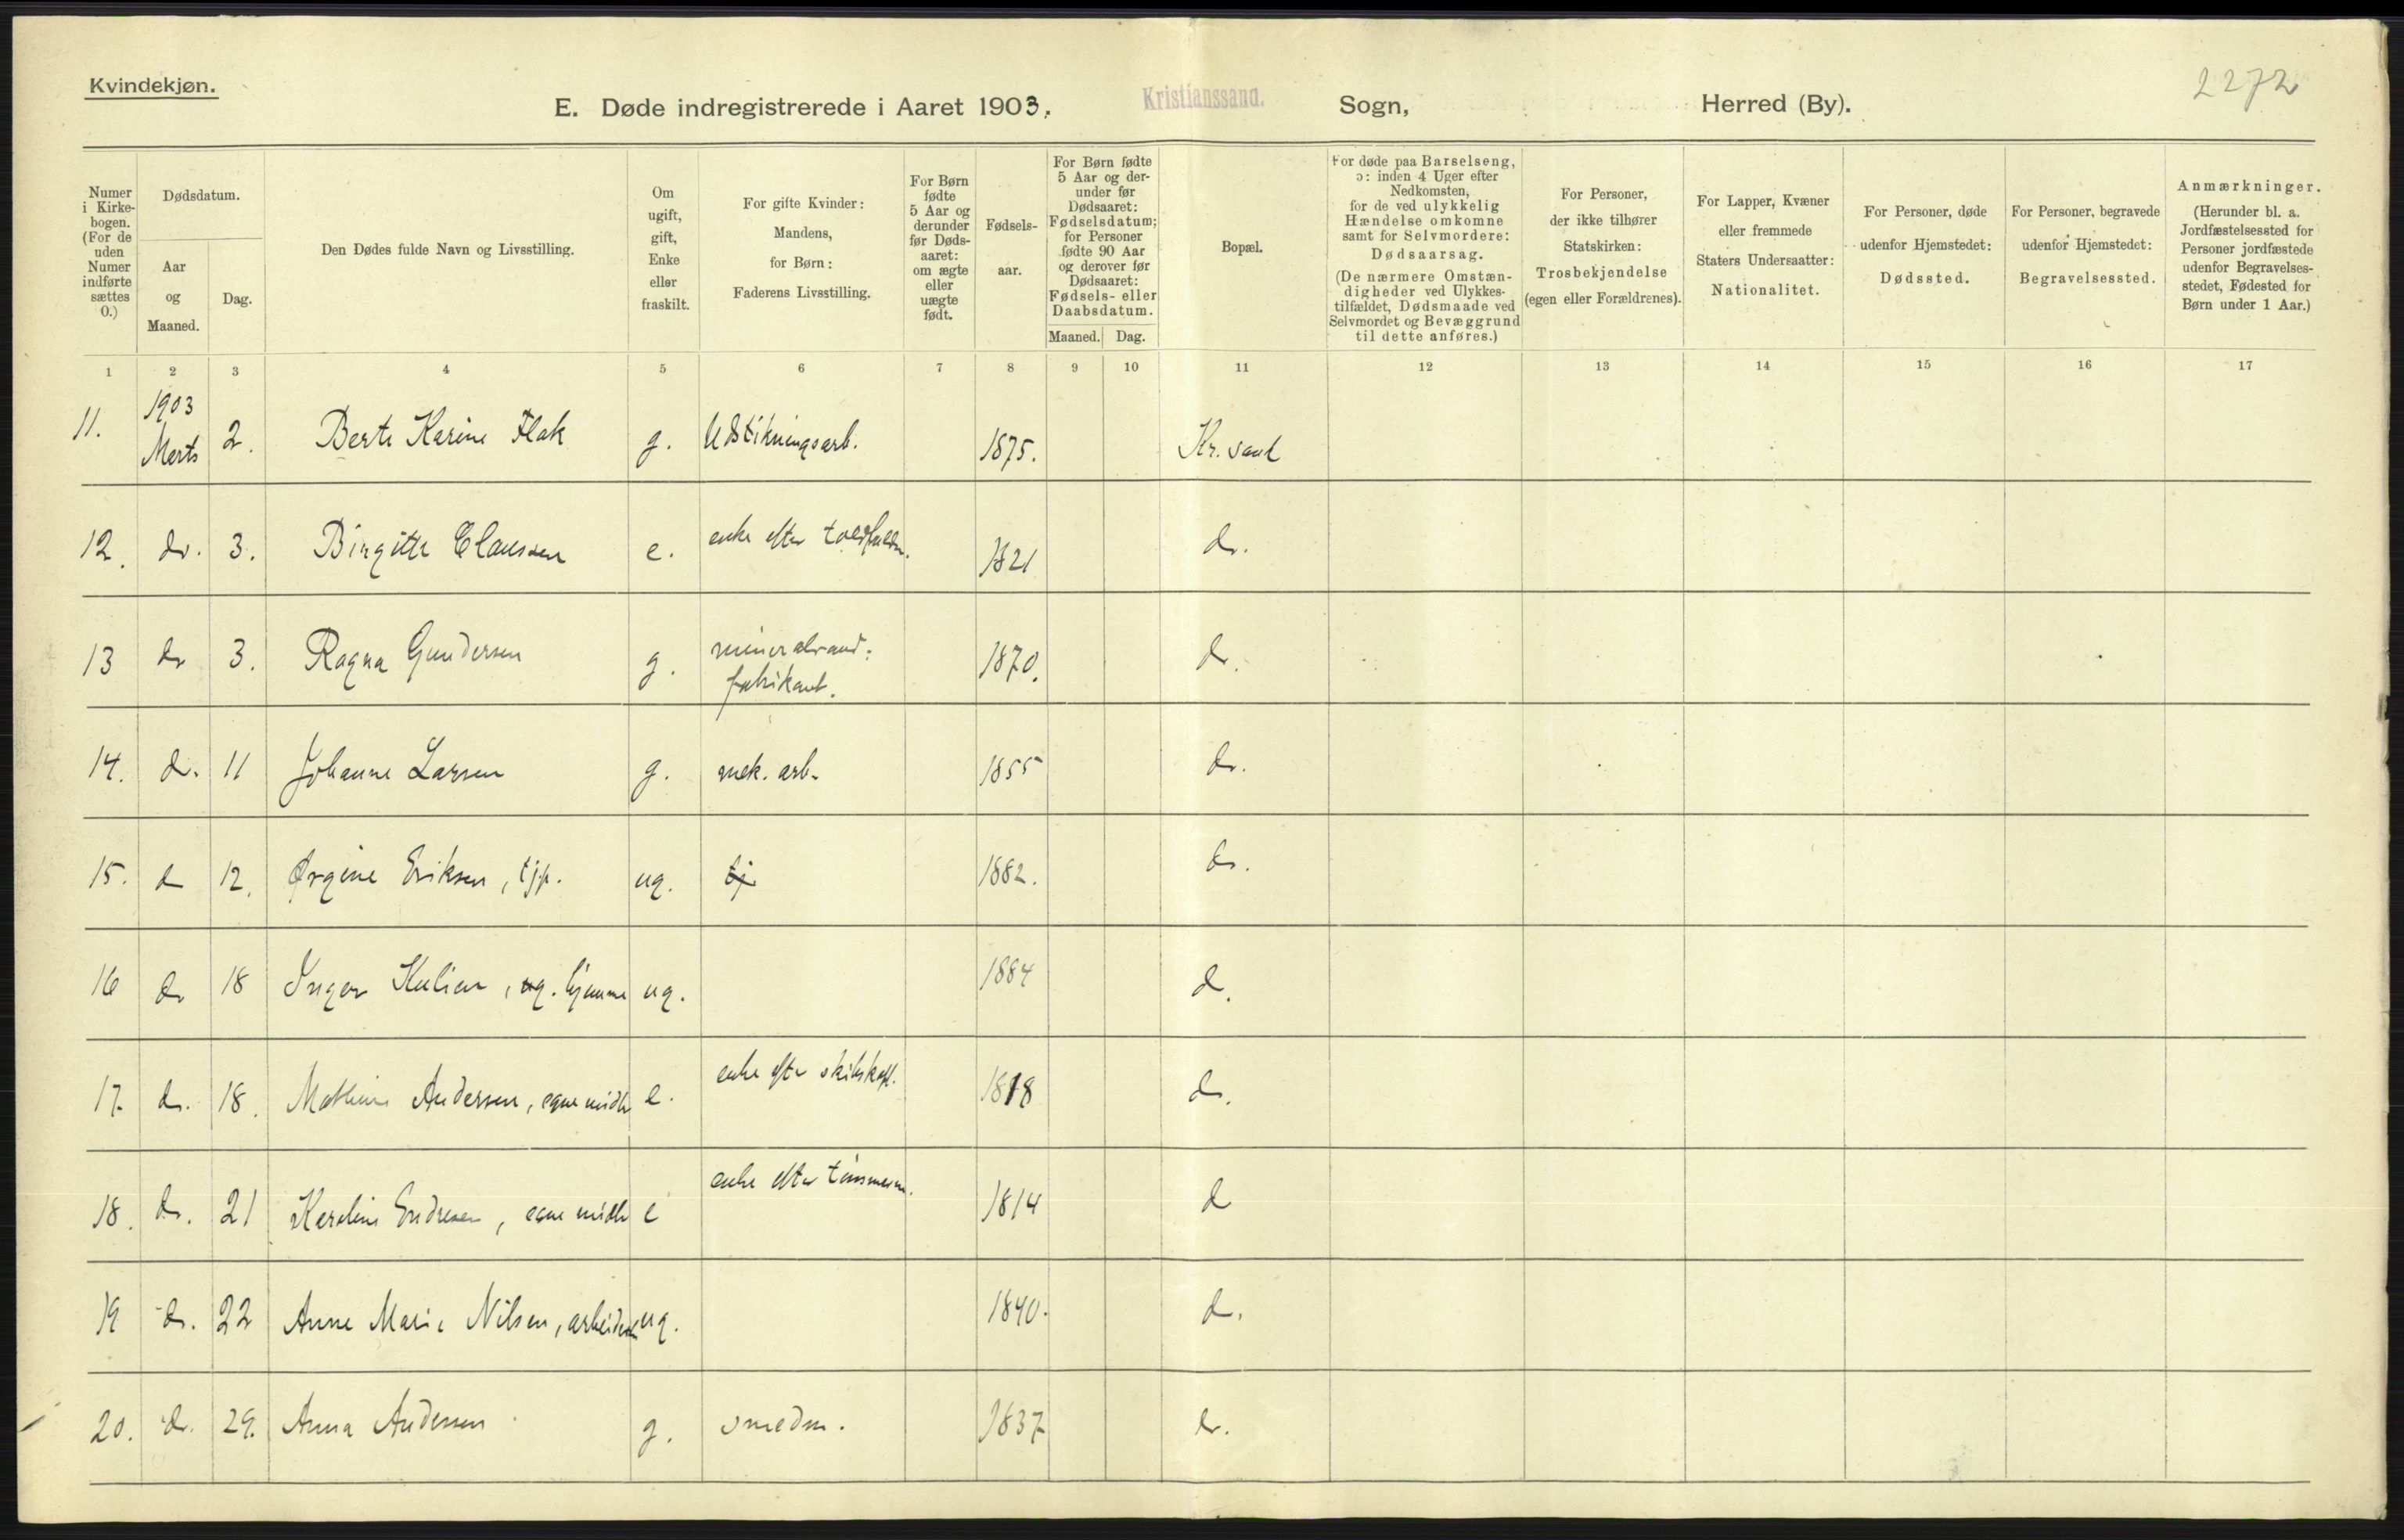 Kvindekjøn.
E. Døde indregistrerede i Aaret 1903.
Kristianssand.
Sogn,
Herred (By).
2272
Numer
i Kirke-
bogen.
(For de
uden
Numer
indførte
sættes
0.)
Dødsdatum.
Aar
og
Maaned.
Dag.
Den Dødes fulde Navn og Livsstilling.
Om
ugift,
gift,
Enke
eller
fraskilt.
For gifte Kvinder:
Mandens,
for Børn:
Faderens Livsstilling.
For Børn
fødte
5 Aar og
derunder
før Døds-
aaret:
om ægte
eller
uægte
født.
Fødsels-
aar.
For Børn fødte
5 Aar og der-
under før
Dødsaaret:
Fødselsdatum;
for Personer
fødte 90 Aar
og derover før
Dødsaaret:
Fødsels- eller
Daabsdatum.
Maaned.
Dag.
Bopæl.
For døde paa Barselseng,
ɔ: inden 4 Uger efter
Nedkomsten,
for de ved ulykkelig
Hændelse omkomne
samt for Selvmordere:
Dødsaarsag.
(De nærmere Omstæn-
digheder ved Ulykkes-
tilfældet, Dødsmaade ved
Selvmordet og Bevæggrund
til dette anføres.)
For Personer,
der ikke tilhører
Statskirken:
Trosbekjendelse
(egen eller Forældrenes).
For Lapper, Kvæner
eller fremmede
Staters Undersaatter:
Nationalitet.
For Personer, døde
udenfor Hjemstedet:
Dødssted.
For Personer, begravede
udenfor Hjemstedet:
Begravelsessted.
Anmærkninger.
(Herunder bl. a.
Jordfæstelsessted for
Personer jordfæstede
udenfor Begravelses-
stedet, Fødested for
Børn under 1 Aar.)
1 2 3 4 5 6 7 8 9 10 11 12 13 14 15 16 17
1903
11. Marts 2. Berte Karine Flak g. Udstikningsarb. 1875. Kr.sand
12. do. 3. Birgitte Claussen e. enke efter 1821 do.
13 do 3. Ragna Gundersen g. mineralvand- 1870. do.
fabrikant.
14. do. 11 Johanne Larsen g. mek. arb. 1855 do.
15. do 12. Ørgine Eriksen, tjp. ug. tj 1882. do.
16 do 18 Inger, ug. hjemme ug. 1884 do.
17. do. 18. Mathine Andersen, egne midl. e. enke efter skibskapt. 1818 do.
18. do. 21 Karoline Endresen, egne midl. e enke efter tømmerm. 1814 do
19 do. 22 Anne Marie Nilsen, arbeiderske ug. 1840. do.
20. do. 29. Anna Andersen g. smedm. 1837 do.